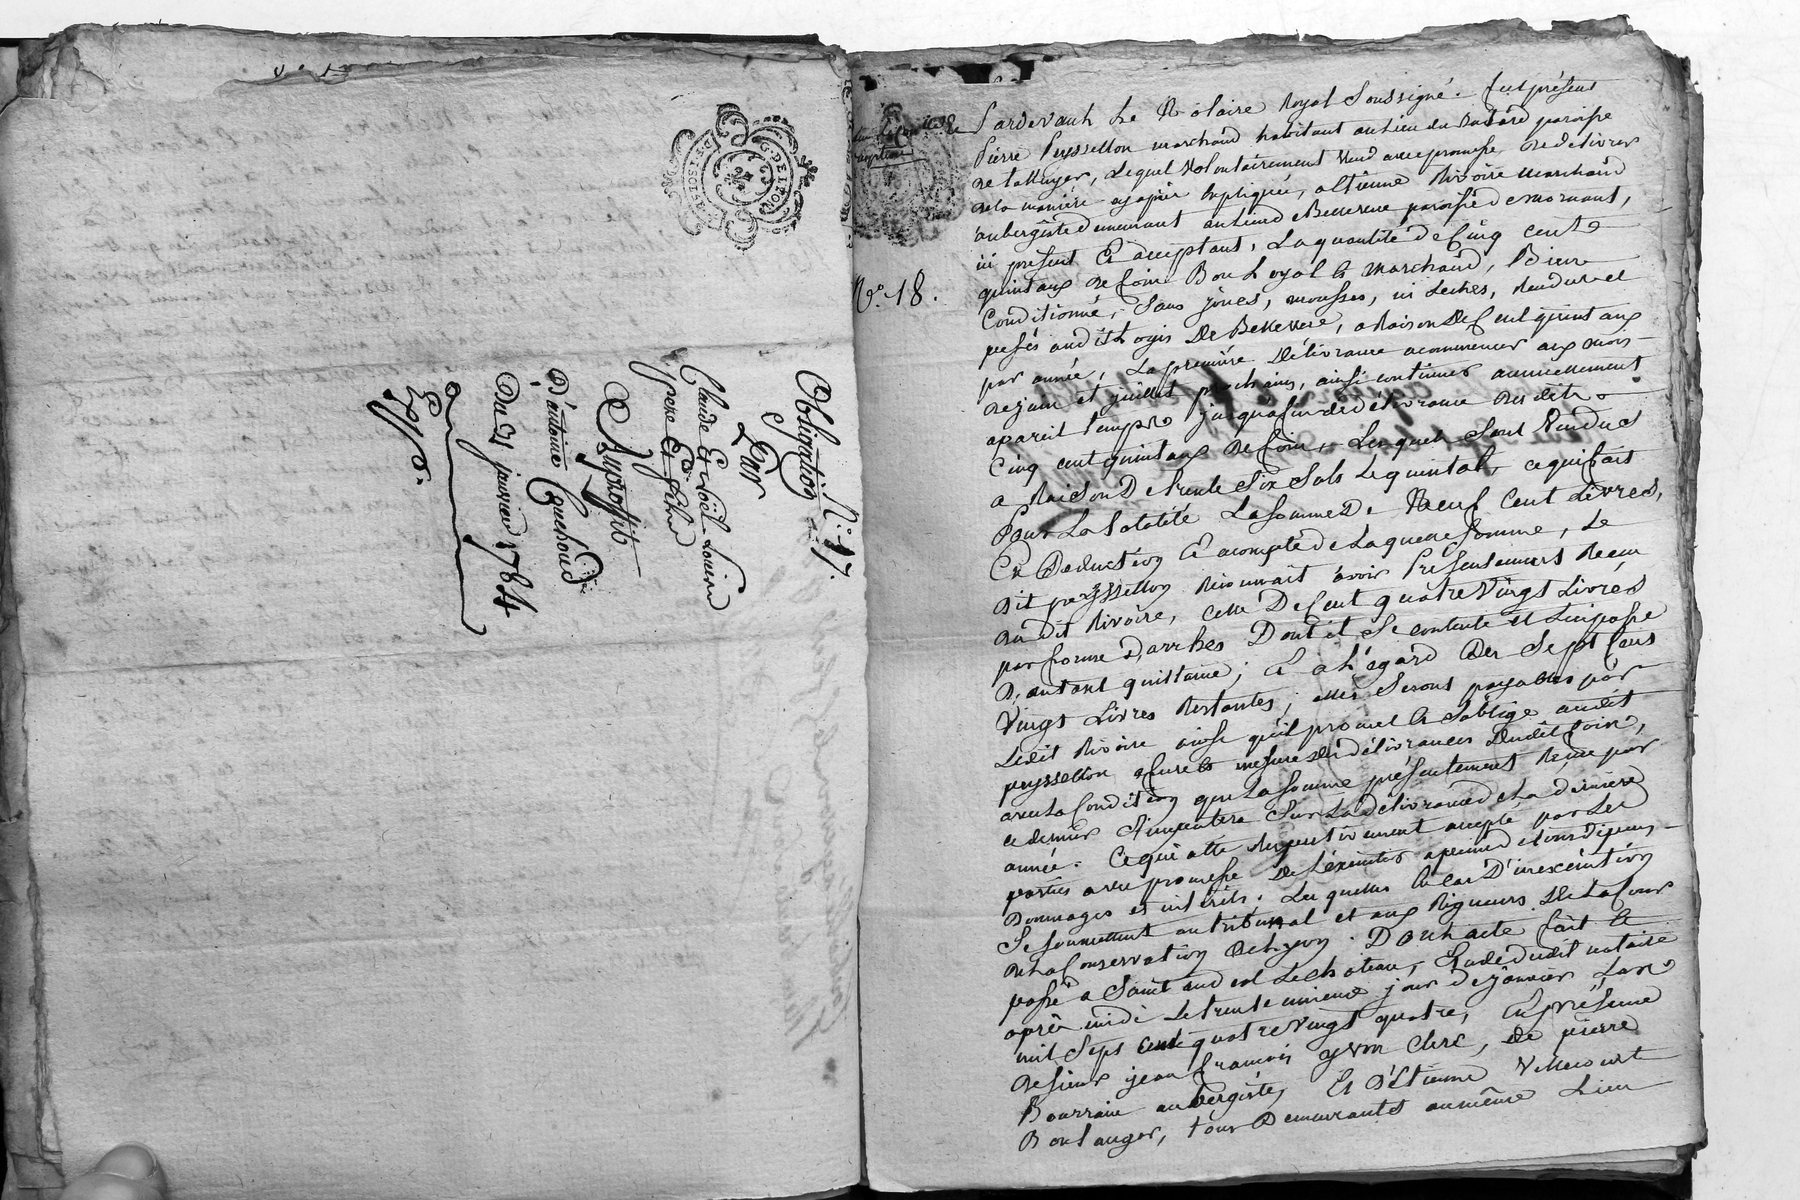 G. DE LYON
2 S
N.° 17.
Obligation
Par
Claude Et Noël
pere Et fils
D'antoine
Du 21 janvier 1784
N.° 18.
Pardevant Le Notaire Royal Soussigné. fut présent
Pierre Peyssellon marchand habitant au lieu du paroisse
de talluyer, Lequel volontairement vend avec promesse de délivrer
de la manière cyaprès Expliquée, a Etienne Rivoire marchand
aubergiste demeurant au lieu de Bellevue paroisse de mornant,
ici présent Et acceptant, La quantité de Cinq cent
quintaux de foin Bon Loyal Et marchand, Bien
Conditionné, Sans joncs, mousses, ni Leches, Rendu et
pesés audit Logis De Bellevue, a Raison De Cent quintaux
par année, La première Délivrance a commencer aux mois
de juin et juillet prochains, ainsi continuer annuellement
a pareil temps jusqu'a fin de délivrance desdits
Cinq cent quintaux de foin, Lesquels Sont Vendus
a Raison De trente Six Sols Le quintal, ce qui fait
Pour La totalité La Somme De Neuf Cent Livres,
En Deduction Et acompte de Laquelle Somme, Le
Dit peyssellon Reconnait avoir Présentement Reçu
du dit Rivoire, celle De Cent quatre Vingt Livres
par forme D'arrhes Dont il Se contente Et L'en passe
D'autant quittance; Et a L'égard Des Sept Cent
Vingt Livres Restantes, elles Seront payables par
Ledit Rivoire ainsi qu'il promet Et S'oblige audit
peyssellon a fur Et mesure des délivrances Dudit foin,
avec La Condition que La Somme présentement Reçue par
ce dernier S'imputera Sur La délivrance de La dernière
année. Ce qui a été Respectivement accepté par Les
parties avec promesse De L'éxécuter a peine de tous dépens
Dommages et intérêts. Lesquelles En cas D'inexécution
Se Soumettent au tribunal et aux Rigueurs De La Cour
de La Conservation de Lyon. Dont acte fait Et
passé a Saint andéol Le château, Etude dudit notaire
après midi Le trente unieme jour de janvier L'an
mil Sept Cent quatre vingt quatre, En présence
de Sieur jean francois yvon clerc, de pierre
aubergiste, Et D'Etienne Villecourt
Boulanger, tous Demeurants au même Lieu